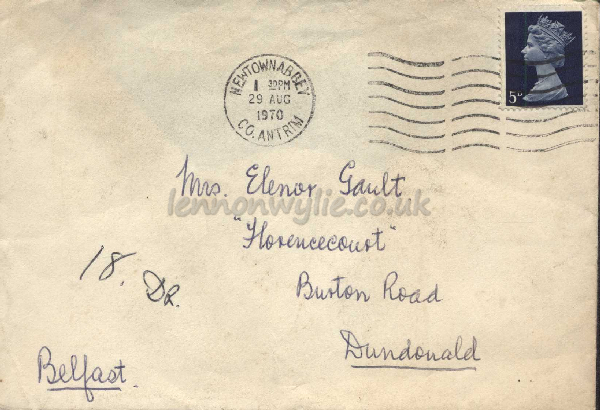 NEWTOWNABBEY
1 30PM
29 AUG
1970
CO. ANTRIM
5D
Mrs. Elenor Gault
lennonwylie.co.uk
"Florencecourt"
Burton Road
Dundonald
18. DR.
Belfast.